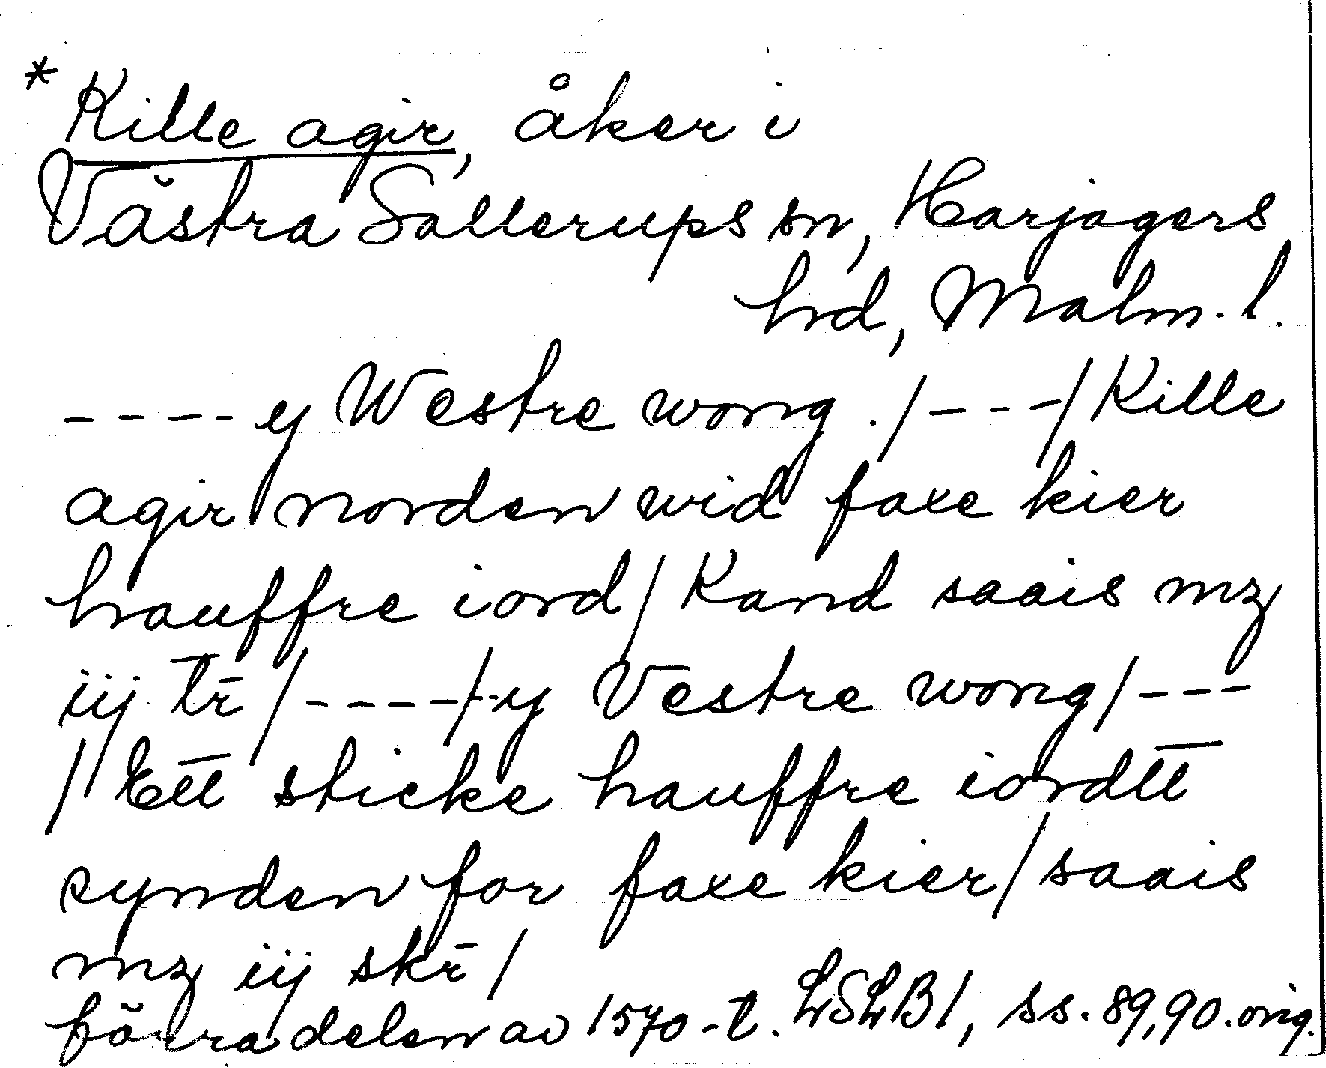 * Kille agir, åker i
Västra Sallerups sn, Harjagers
hd, Malm. l.
- - - - y Westre wong ./ - - - / Kille
agir norden wid faxe kier
hauffre iord / Kand saais mz
iij tr̄ / - - - - / - y Vestre wong / - - -
/ Ett sticke hauffre iordtt
synden for faxe kier / saais
mz iij skr̄ /
förra delen av 1570-t. LSLB1, ss. 89, 90. orig.